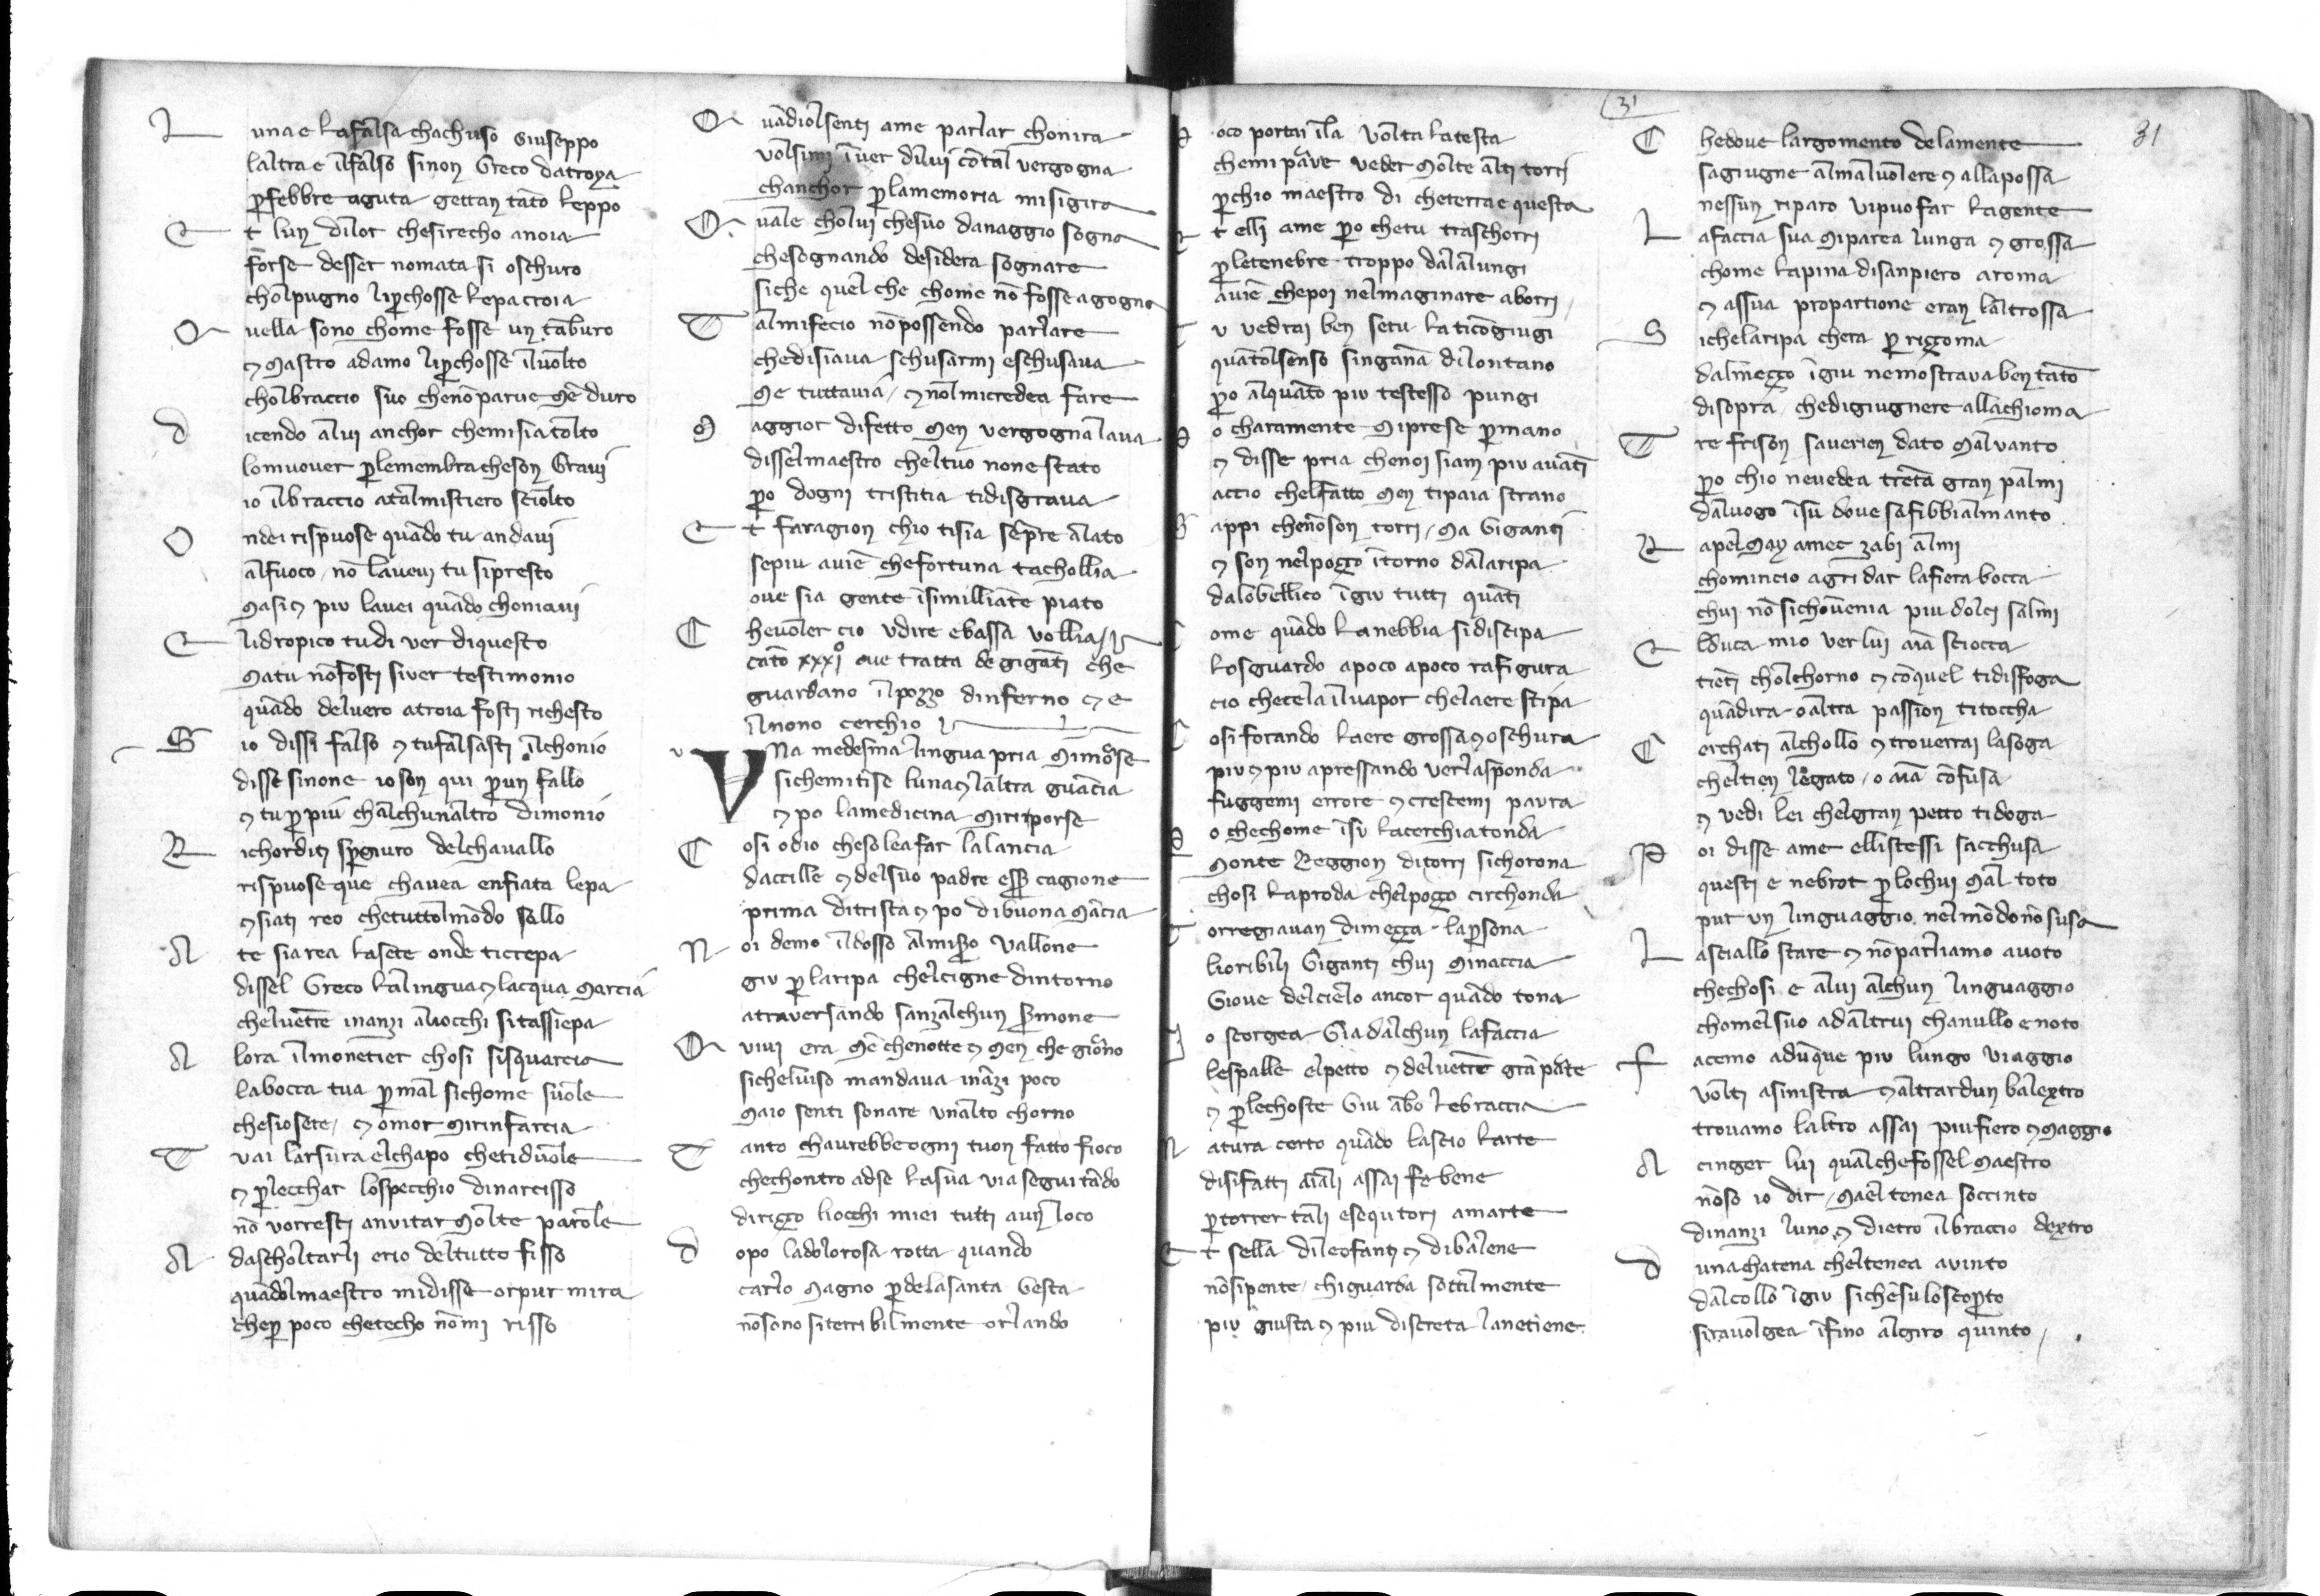 L una e la falsa chachuso Giuseppo
laltra e ilfalso sinon Greco datroya
p̱febbre aguta gettan tāto leppo
E t lun dilor chesirecho anoia
forse desser nomata si oschuro
cholpugno lip̱chosse lepa croia
Q uella sono chome fosse un tāburo
⁊ Mastro adamo lip̱chosse iluolto
cholbraccio suo chenō parue mē duro
d icendo alui anchor chemisia tolto
lomuouer p̱lemembra cheson Graui
io ilbraccio atalmistiero sciolto
O ndei rispuose quādo tu andaui
alfuoco, nō laueui tu sipresto
Masi ⁊ piu lauei quādo choniaui
E lidropico tu di uer diquesto
Matu nō fosti siuer testimonio
quādo deluero atroia fosti richesto
S io dissi falso ⁊ tufalsasti ilchonio
disse sinone io son qui p̱un fallo
⁊ tu p̱piu chalchunaltro dimonio
R ichorditi sp̱giuro delchauallo
rispuose que chauea enfiata lepa
⁊ siati reo chetuttolmōdo sallo
A te sia rea lasete onde ticrepa
dissel Greco lalingua ⁊ lacqua Marcia
cheluētre inanzi aliocchi sitassiepa
A lora ilmonetier chosi sisquarcia
labocca tua p̱mal sichome suole
chesiosete, ⁊ omor mirinfarcia
T u ai larsura elchapo chetiduole
⁊ p̱lecchar lospecchio dinarcisso
nō vorresti anuitar Molte parole
A daschōltarli erio deltutto fisso
quādolmaestro midisse or pur mira
chep̱ poco chetecho nō mi risso
Q uādiolsenti ame parlar chonira
volsimi īuer dilui cō tal vergogna
chanchor p̱lamemoria misigira
Q uale cholui chesuo danaggio sogna
chesognando desidera sognare
siche quel che chome nō fosse agogna
T almifecio nō possendo parlare
chedisiaua schusarmi eschusaua
Me tuttauia, ⁊ nolmicredea fare
M aggior difetto Men vergogna laua
disselmaestro cheltuo none stato
p̱o dogni tristitia tidisgraua
E t faragion chio tisia sēpre alato
sepiu auiē chefortuna tachollia
oue sia gente īsimilliāte piato
C heuoler cio vdire e bassa vollia
cāto xxxi° oue tratta de giganti che
guardano ilpozzo dinferno ⁊ e
ilnono cerchio
V Na medesma lingua pria Mimorse
sichemitīse luna ⁊ laltra guācia
⁊ po lamedicina Miriporse
C osi odio chesolea far lalancia
daccille ⁊ delsuo padre esser cagione
prima ditrista ⁊ po dibuona Mācia
N oi demo ildosso almisero vallone
giu p̱laripa chelcigne dintorno
atrauersando sanzalchun sermone
Q uiui era mē chenotte ⁊ Men che giorno
sicheluiso mandaua inanzi poco
Maio senti sonare vnalto chorno
T anto chaurebbe ogni tuon fatto fioco
chechontro adse lasua via seguitādo
dirizzo liocchi miei tutti aun loco
d opo ladolorosa rotta quando
carlo Magno p̱de lasanta Gesta
nō sono siterribilmente orlando
P oco portai īla volta latesta
chemi parue veder Molte alti torri
p̱chio maestro di cheterra e questa
E t elli ame p̱o chetu traschorri
p̱letenebre troppo dalalungi
auiē chepoi nelmaginare aborri
T u vedrai ben setu laticōgiugi
quātolsenso singāna dilontano
p̱o alquāto piu testesso pungi
P o charamente Miprese p̱mano
⁊ disse pria chenoi siam piu auāti
accio chelfatto Men tipaia strano
S appi chenō son torri, Ma Giganti
⁊ son nelpozzo ītorno dalaripa
dalobellico īgiu tutti quāti
C ome quādo lanebbia sidiscipa
losguardo apoco apoco rafigura
cio checela iluapor chelaere stipa
C osi forando laere grossa ⁊ oschura
piu ⁊ piu apressando ver lasponda
fuggemi errore ⁊ crescemi paura
P o chechome īsu lacerchia tonda
Monte Reggion ditorri sichorona
chosi laproda chelpozzo circhonda
T orregiauan dimezza lap̱sona
lioribili Giganti chui Minaccia
Gioue delcielo ancor quādo tona
I o scorgea Gia dalchun lafaccia
lespalle elpetto ⁊ deluētre grā parte
⁊ p̱lechoste Giu abo lebraccia
N atura certo quādo lascio larte
disifatti aīali assai fe bene
p̱torrer tali esequtori amarte
E t sella dileofanti ⁊ dibalene
nō sipente, chi guarda sottilmente
piu giusta ⁊ piu discreta lanetiene
31
C hedoue largomento delamente
sagiugne almaluolere ⁊ allapossa
nessun riparo vipuo far lagente
L afaccia sua Miparea lunga ⁊ grossa
chome lapina disanpiero aroma
⁊ assua propartione eran laltrossa
S ichelaripa chera p̱rizzoma
dalmezzo īgiu nemostraua ben tāto
disopra, chedigiugnere allachioma
T re frison sauerien dato Mal vanto
p̱o chio neuedea trēta gran palmi
daluogo īsu doue safibbialmanto
R apelmay amec zabi almi
chomincio agridar lafiera bocca
chui nō sichōuenia piu dolci salmi
E lduca mio ver lui aīa sciocca
tieti cholchorno ⁊ cō quel tidisfoga
quādira o altra passion titoccha
C erchati alchollo ⁊ trouerrai lasoga
cheltien legato, o aīa cōfusa
⁊ vedi lei chelgran petto ti doga
P oi disse ame ellistessi sacchusa
questi e nebrot p̱lochui Mal toto
pur un linguaggio nelmōdo nō susa
L asciallo stare ⁊ nō parliamo auoto
chechosi e alui alchun linguaggio
chomelsuo adaltrui chanullo e noto
f acemo adūque piu lungo viaggio
volti asinistra ⁊ altrardun balextro
trouamo laltro assai piu fiero ⁊ Maggio
A cinger lui qualchefossel Maestro
nō so io dir, Maeltenea soccinto
dinanzi luno, ⁊ dietro ilbraccio dextro
d una chatena cheltenea auinto
dalcollo īgiu sichēsuloscop̱to
sirauolgea īfino algiro quinto